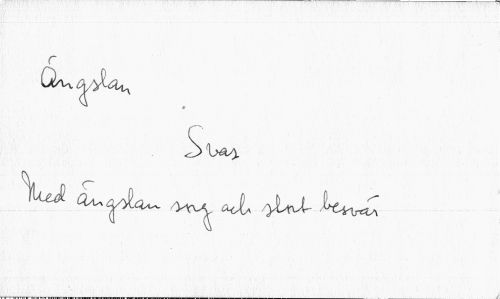 Ängslan
Svar
Med ängslan sorg och stort besvär